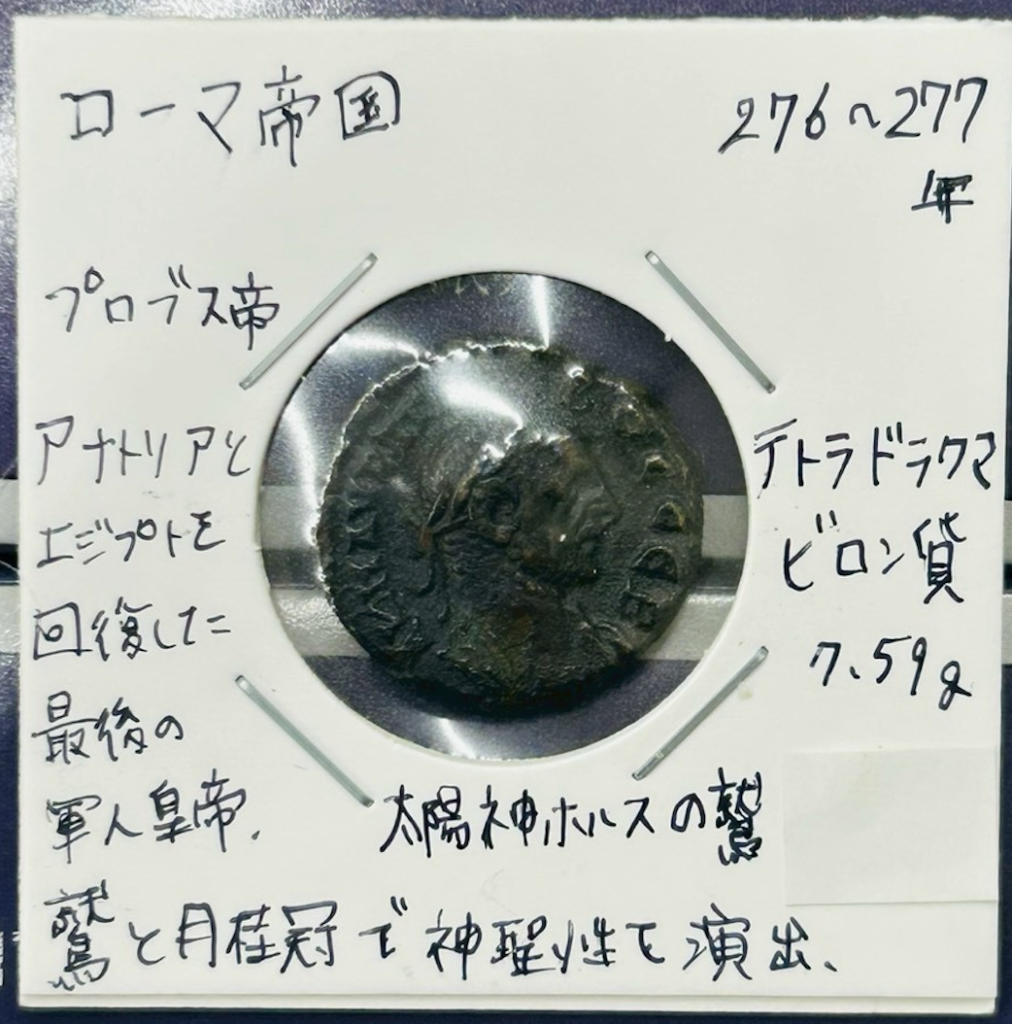 ローマ帝国
276〜277
年
プロブス帝
アナトリアと
エジプトを
回復した
最後の
軍人皇帝.
テトラドラクマ
ビロン貨
7.59g
太陽神ホルスの鷲
鷲と月桂冠で神聖性を演出、